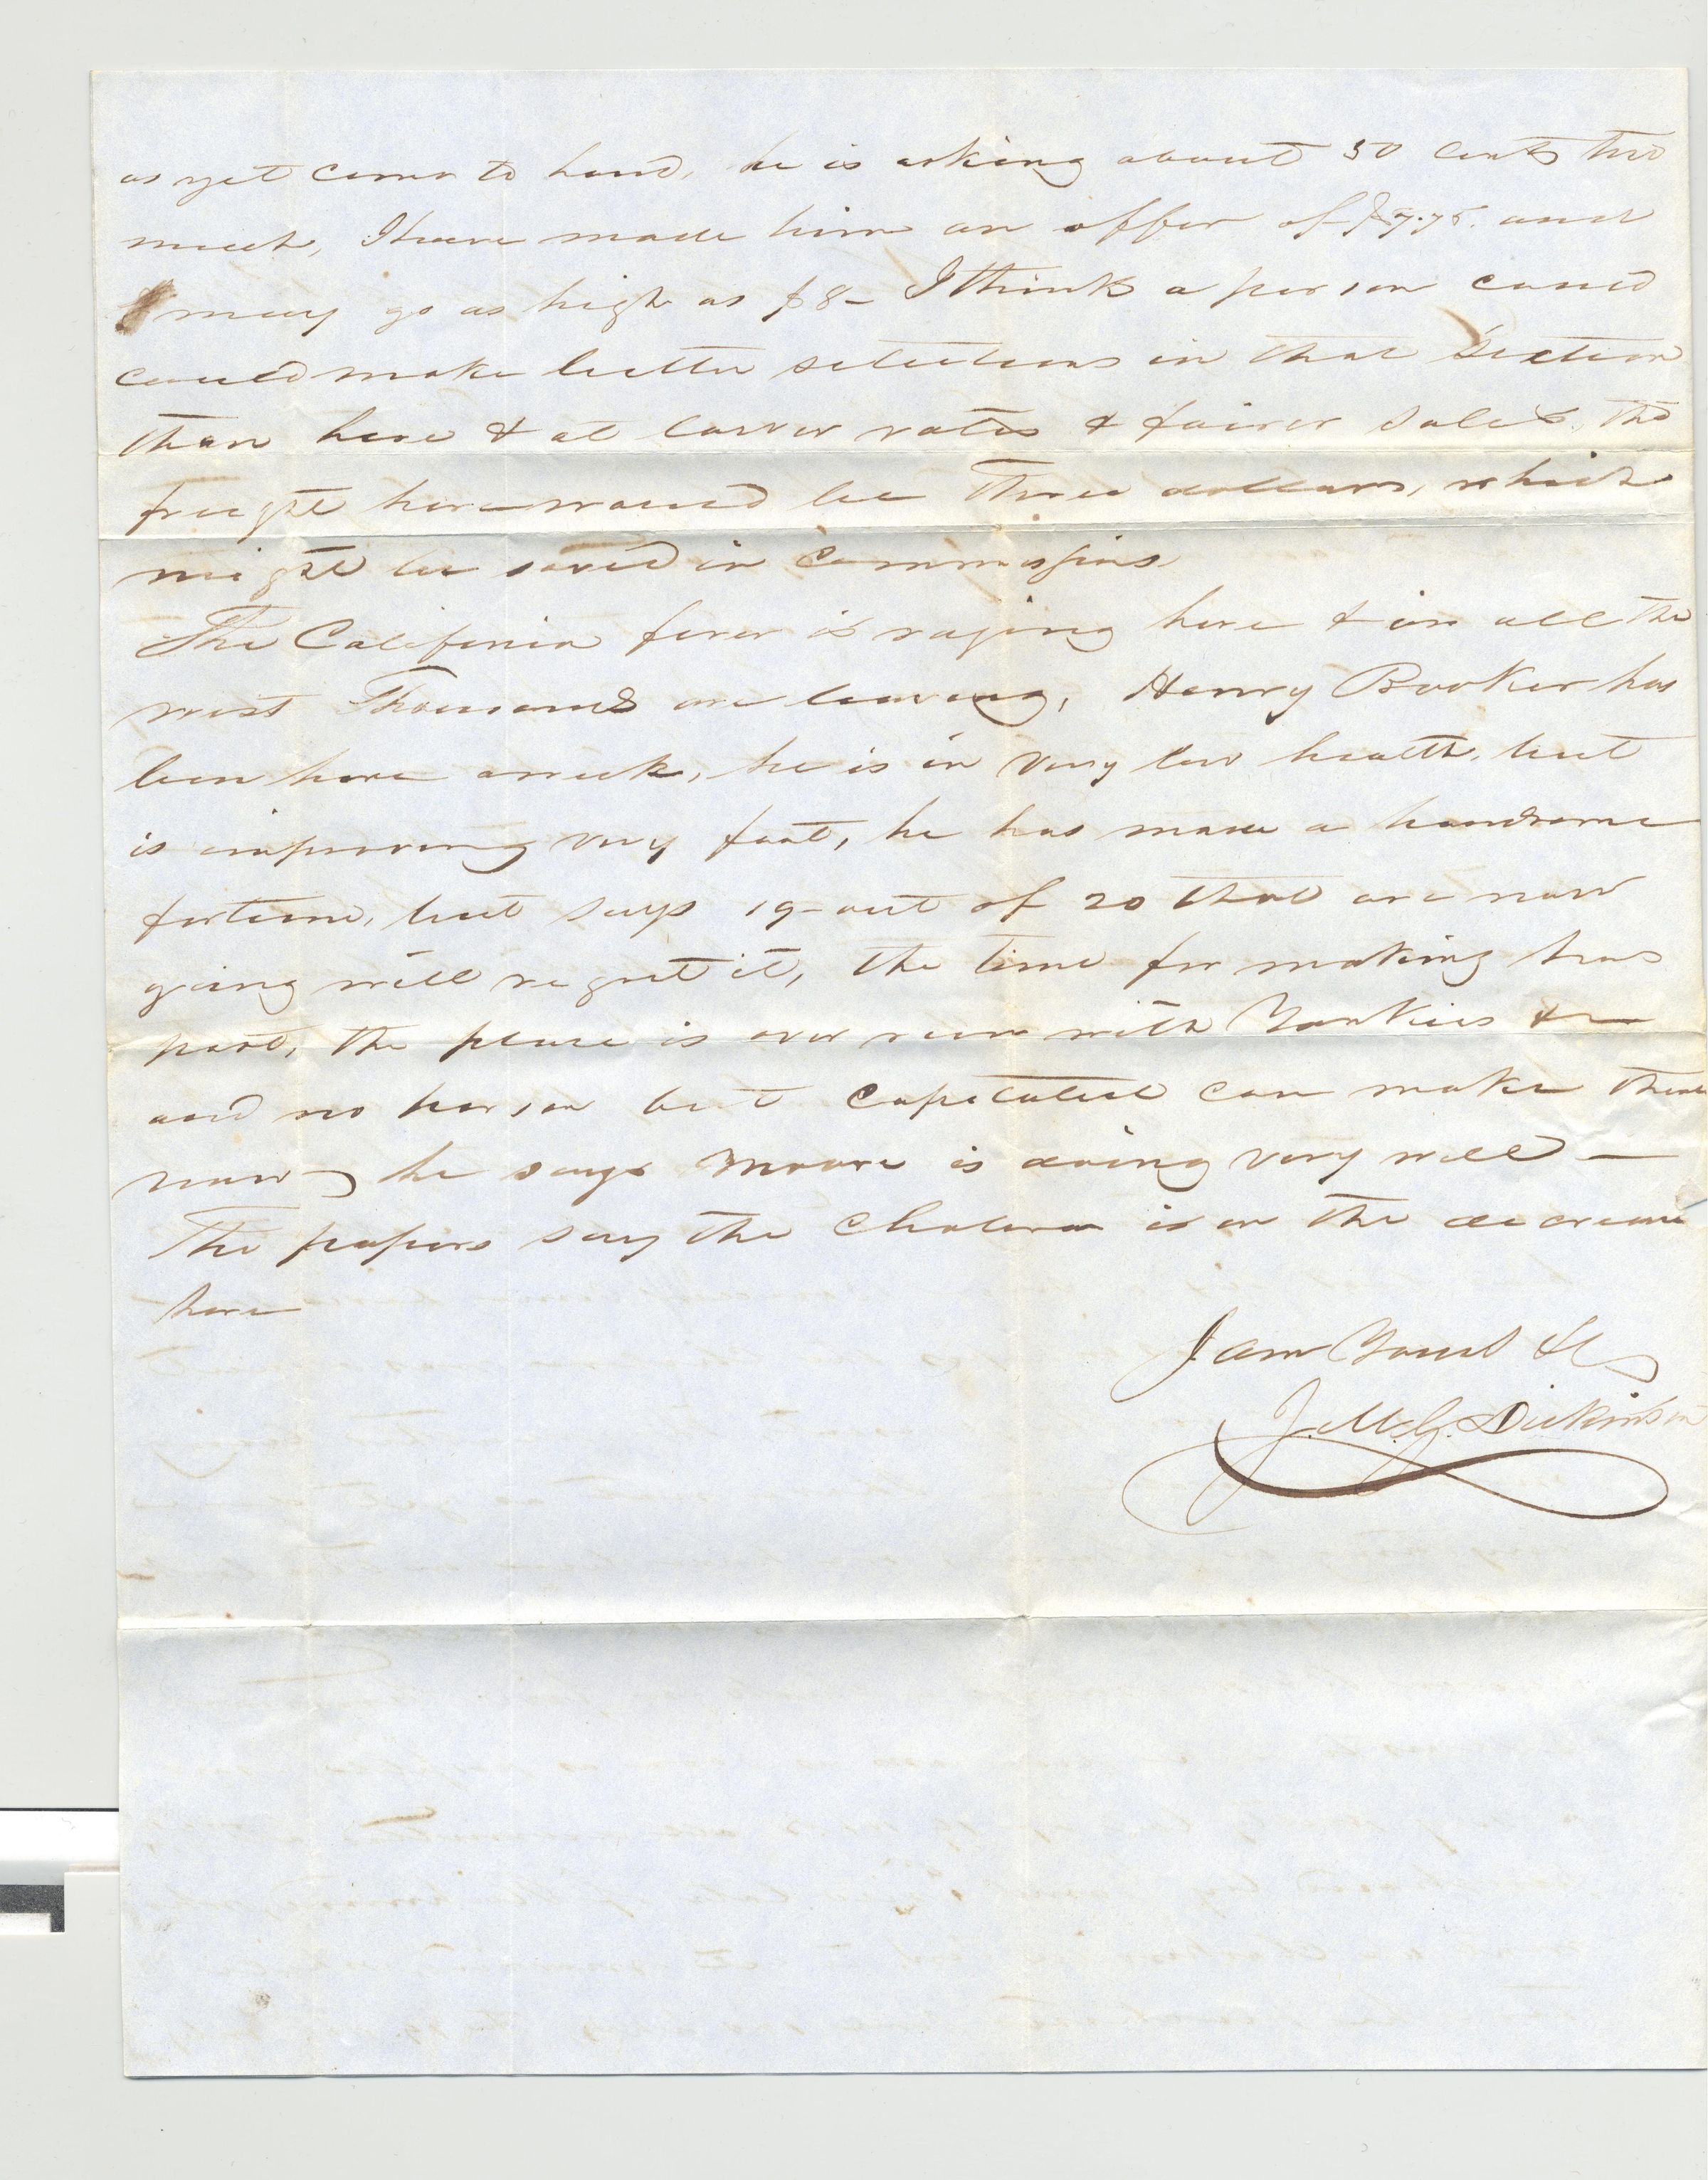 as yet come to hand, he is asking about 50 cents two
much, I have made him an offer of $7.75. and
I may go as high as $8— I think a person coued
coued make better selections in that Section
than here & at lower rates & fairer sales, the
freight here woued be Three dollars, which
might be saved in Commissions
The California fever is raging here & in all the
west Thousands are leaving, Henry Booker has
been here a week, he is in very low health, but
is improving very fast, he has made a handsome
fortune, but says 19-out of 20 that are now
going will regret it, the time for making has
past, the place is over run with Yankies &c
and no person but capitalist can make there
now, he says Moore is doing very well —
The papers say the Cholera is on the decrease
here
I am Yours &c
J. McG. Dickinson